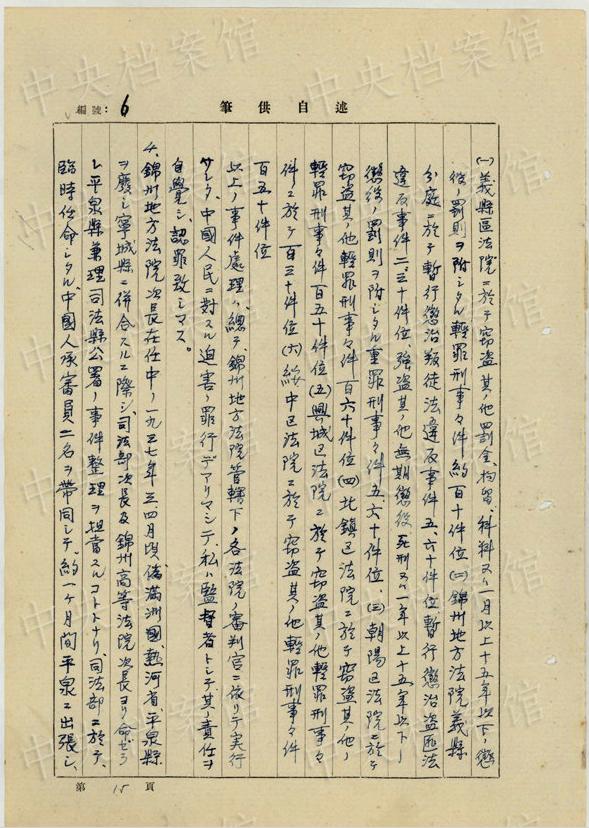 編號：6
述自供筆
(一)義縣區法院ニ於テ窃盗其ノ他罰金、拘留、科料又ハ一月以上十五年以下ノ懲
役ノ罰則ヲ附シタル輕罪刑事々件約百十件位(二)錦州地方法院義縣
分庭ニ於テ暫行懲治叛徒法違反事件五、六十件位暫行懲治盗匪法
違反事件二、三十件位、強盗其ノ他無期懲役、死刑又ハ一年以上十五年以下ノ
懲役ノ罰則ヲ附シタル重罪刑事々件五、六十件位、(三)朝陽区法院ニ於テ
窃盗其ノ他輕罪刑事々件百六十件位(四)北鎮区法院ニ於テ窃盗其ノ他ノ
輕罪刑事々件百五十件位(五)興城区法院ニ於テ窃盗其ノ他輕罪刑事々
件ニ於テ百三十件位(六)綏中区法院ニ於テ窃盗其ノ他輕罪刑事々件
百五十件位
以上ノ事件処理ハ、總テ、錦州地方法院管轄下ノ各法院ノ審判官ニ依リテ実行
サレタ、中國人民ニ対スル迫害ノ罪行デアリマシテ、私ハ監督者トシテ其ノ責任ヲ
自覺シ、認罪致シマス。
4、錦州地方法院次長在任中ノ一九三七年三四月頃、偽満洲國、熱河省平泉縣
ヲ廢シ寧城縣ニ併合スルニ際シ、司法部次長及錦州高等法院次長ヨリ命ゼラ
レ平泉縣兼理司法縣公署ノ事件整理ヲ担当スルコトトナリ、司法部ニ於テ、
臨時任命シタル、中國人承審員二名ヲ帶同シテ、約一ヶ月間平泉ニ出張シ、
第 15 頁
中央档案馆